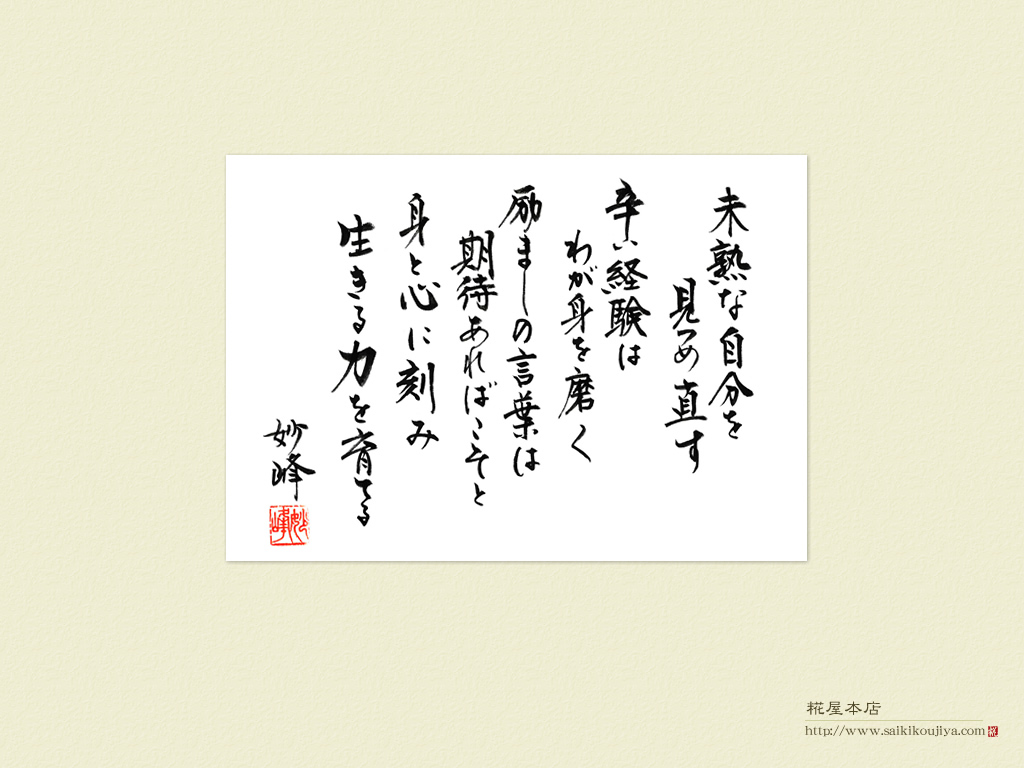 未熟な自分を
見つめ直す
辛い経験は
わが身を磨く
励ましの言葉は
期待あればこそと
身と心に刻み
生きる力を育てる
妙峰
妙峰
糀屋本店
http://www.saikikoujiya.com
糀